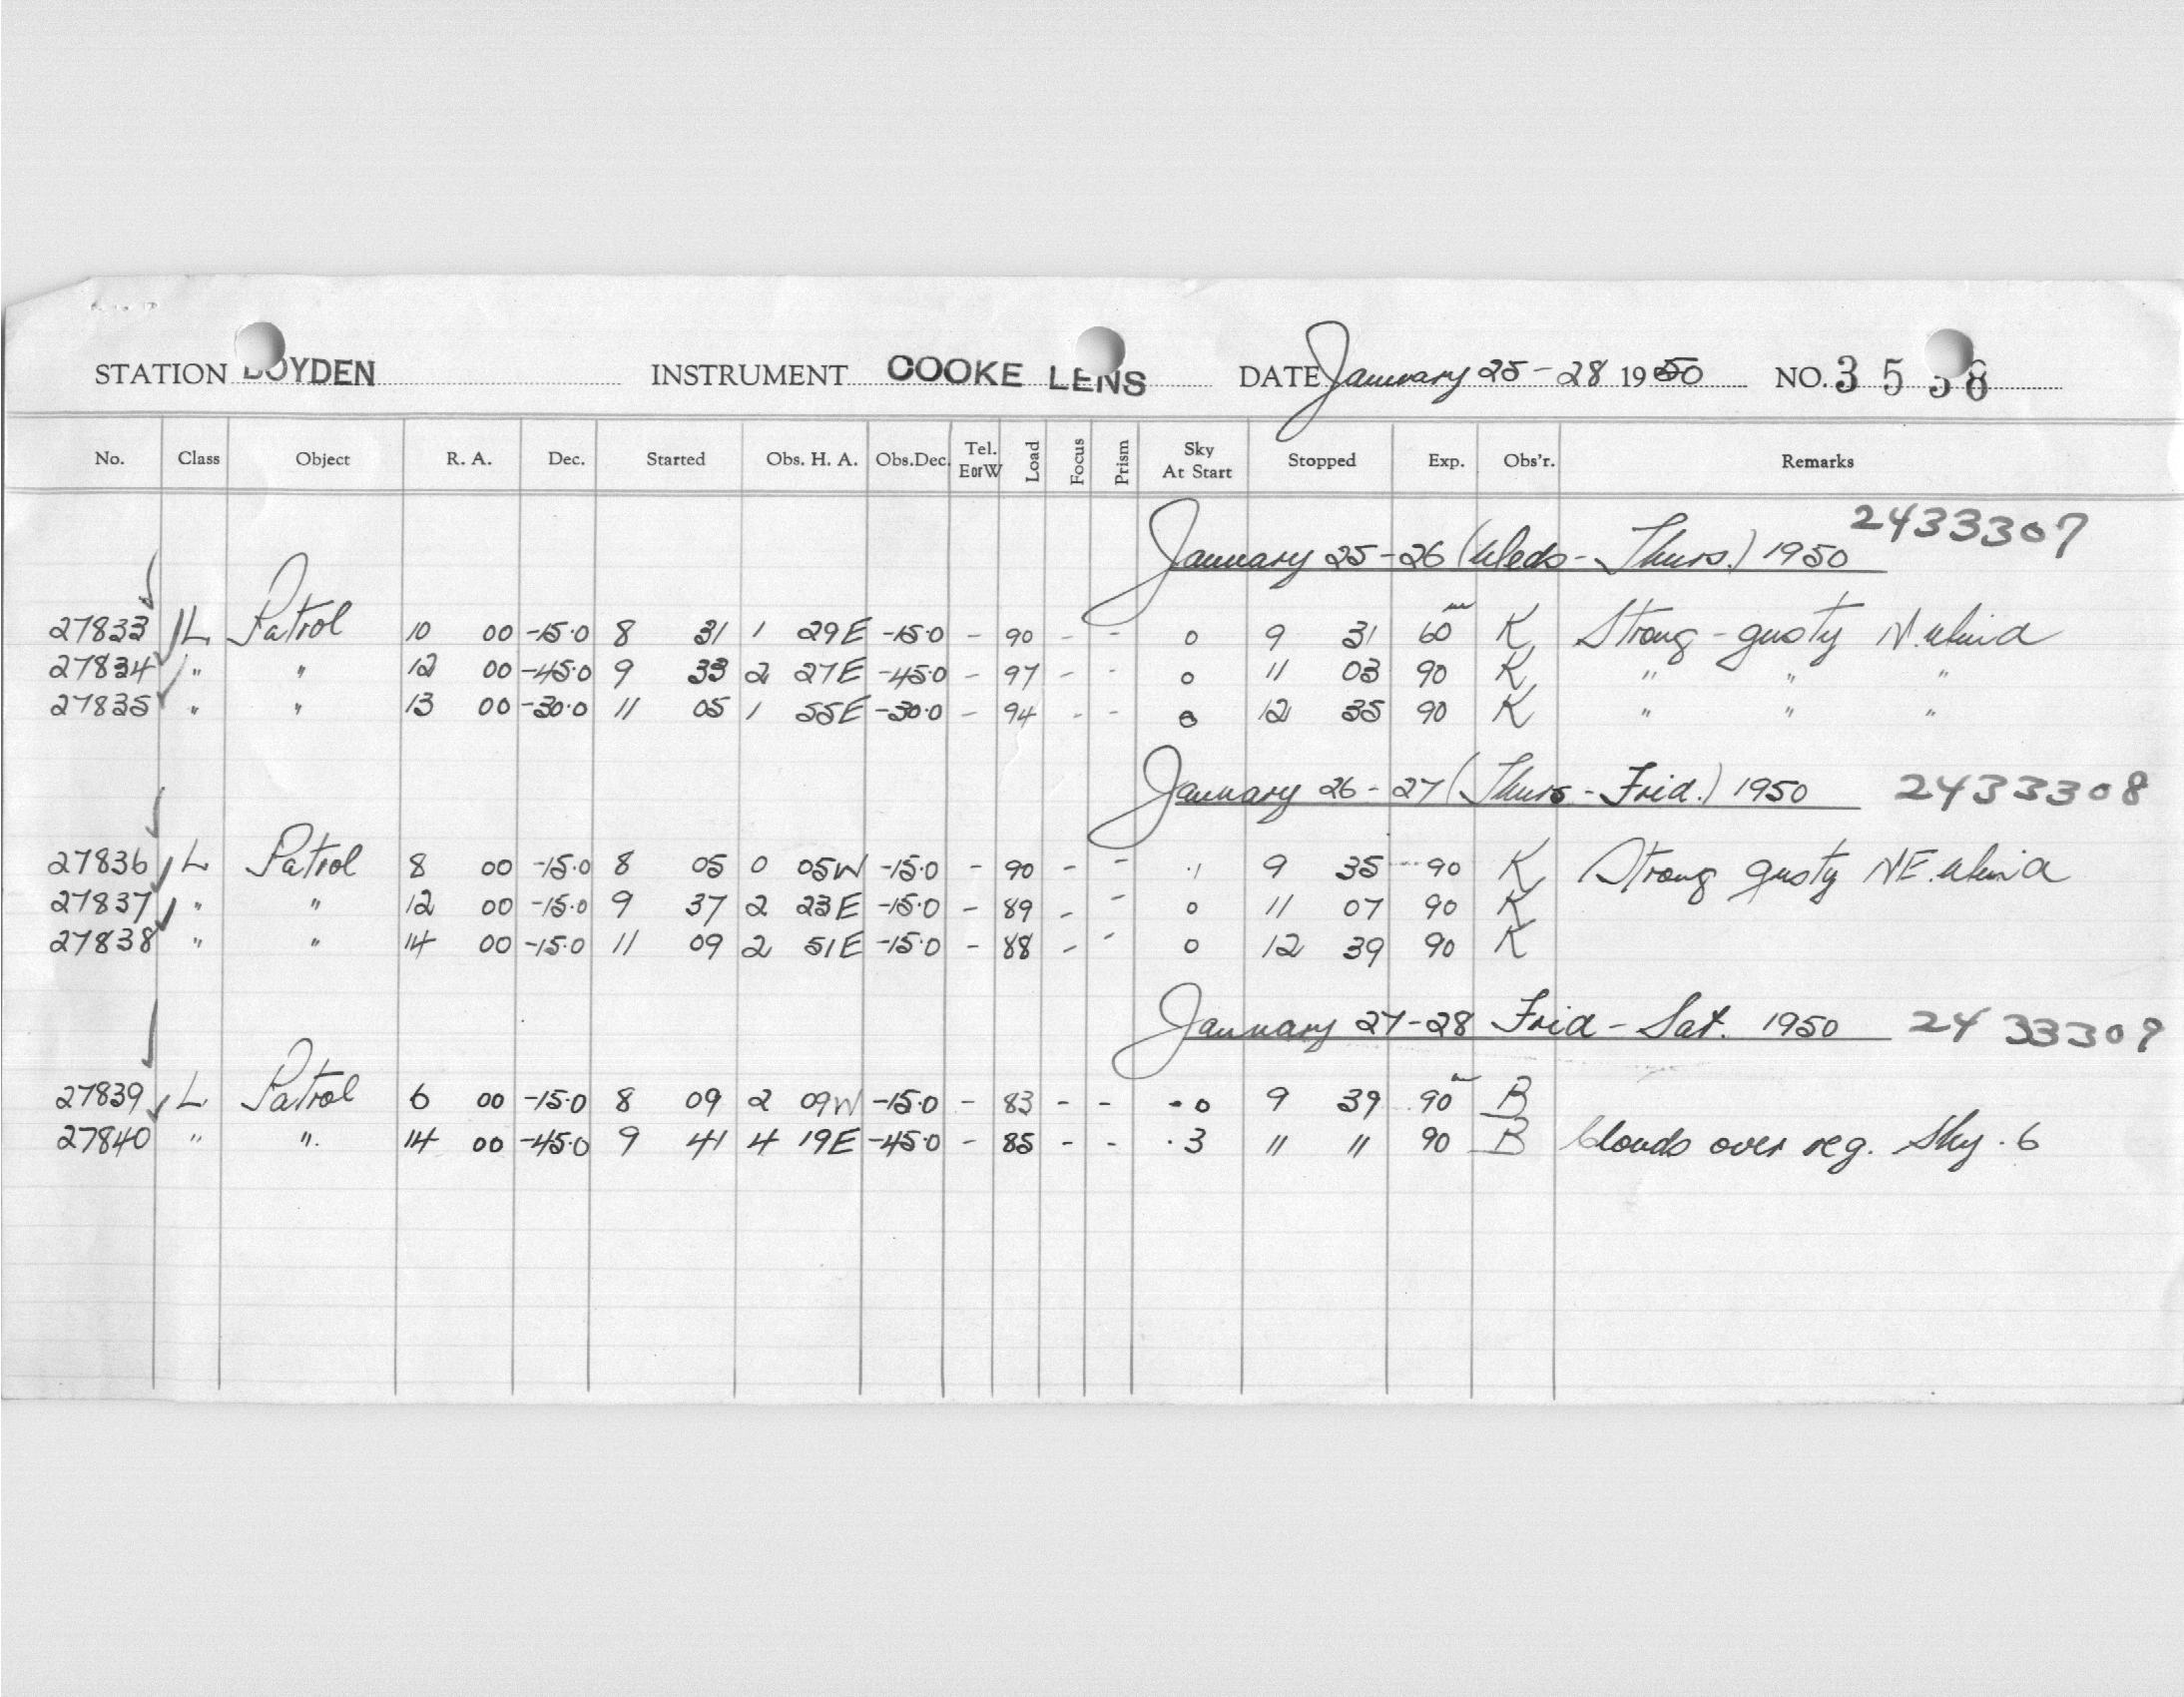 STATION BOYDEN INSTRUMENT COOKE LENS DATE January 25-28 1950 NO. 3 5 5 8
No. Class Object R. A. Dec. Started Obs. H. A. Obs.Dec. Tel. EorW Load Focus Prism Sky At Start Stopped Exp. Obs'r. Remarks
January 25-26 (Weds-Thurs.) 1950 2433307
27833 L Patrol 10 00 -15.0 8 31 1 29E -15.0 - 90 - - 0 9 31 60m K Strong-gusty N.wind
27834 " " 12 00 -45.0 9 33 2 27E -45.0 - 97 - - 0 11 03 90 K " " "
27835 " " 13 00 -30.0 11 05 1 55E -30.0 - 94 - - 0 12 35 90 K " " "
January 26-27 (Thurs-Frid.) 1950 2433308
27836 L Patrol 8 00 -15.0 8 05 0 05W -15.0 - 90 - - .1 9 35 90 K Strong gusty NE.wind
27837 " " 12 00 -15.0 9 37 2 23E -15.0 - 89 - - 0 11 07 90 K
27838 " " 14 00 -15.0 11 09 2 51E -15.0 - 88 - - 0 12 39 90 K
January 27-28 Frid-Sat. 1950 2433309
27839 L Patrol 6 00 -15.0 8 09 2 09W -15.0 - 83 - - .0 9 39 90m B
27840 " ". 14 00 -45.0 9 41 4 19E -45.0 - 85 - - .3 11 11 90 B Clouds over reg. Sky .6